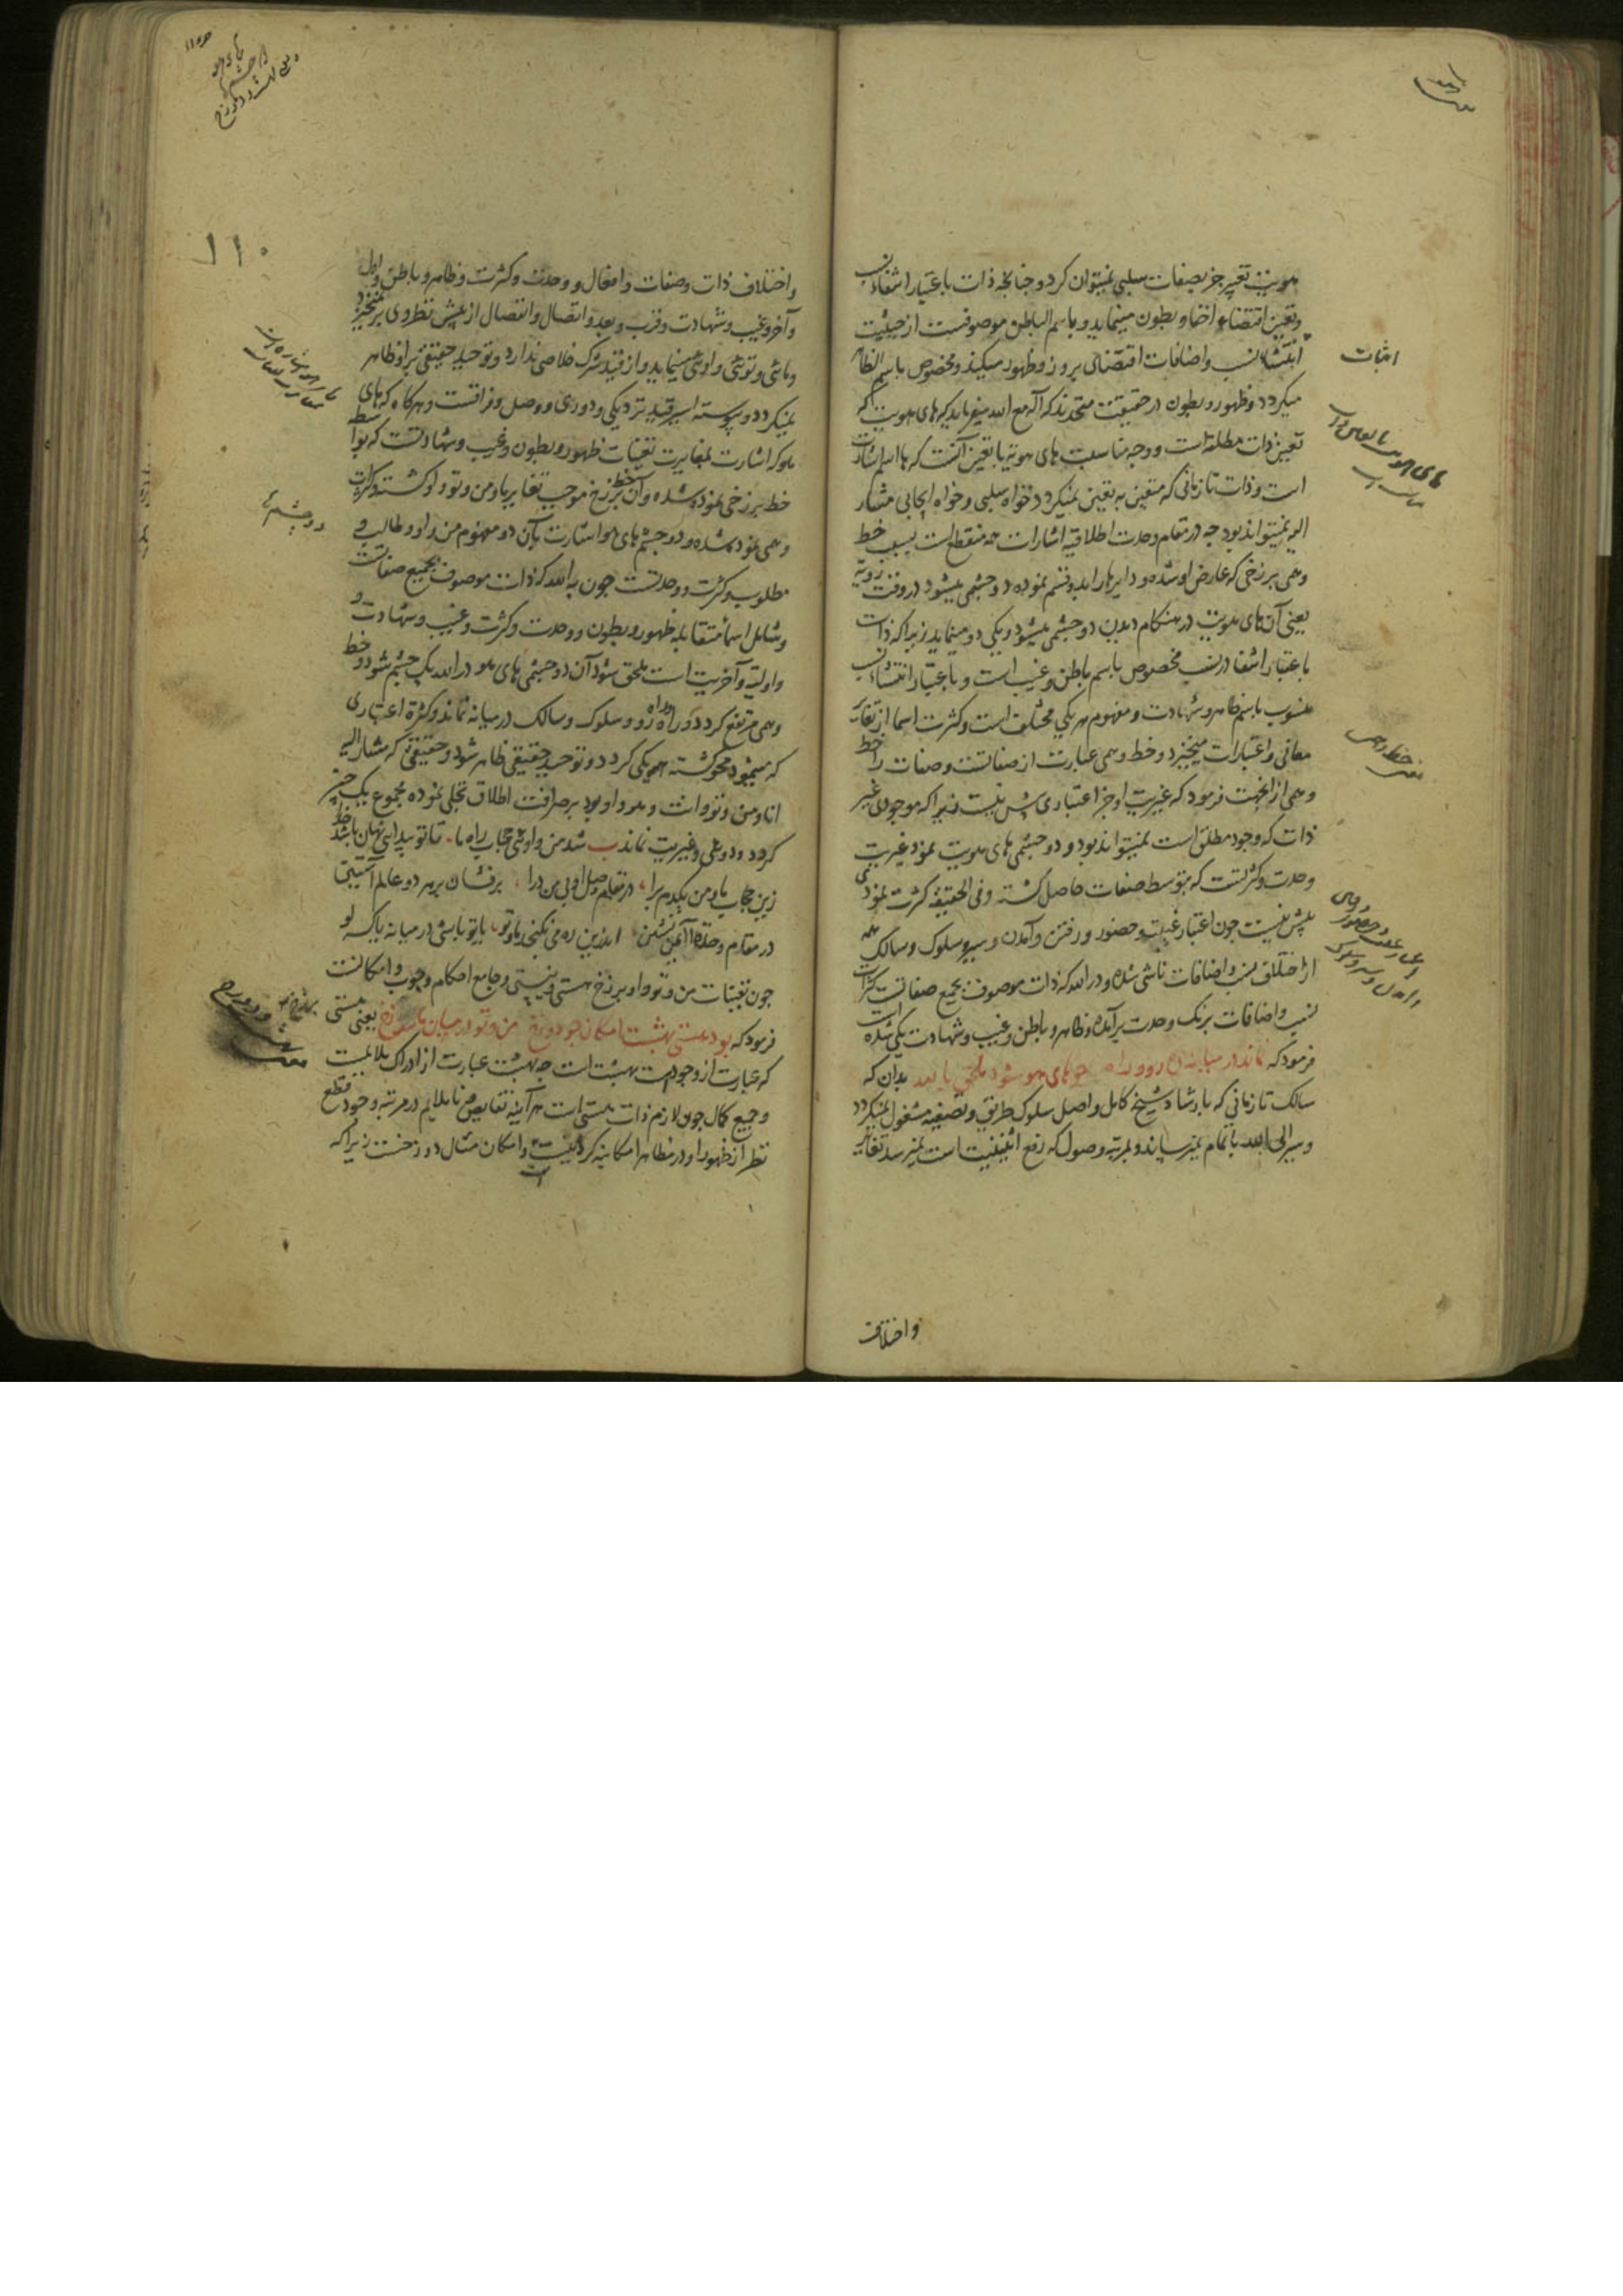 هویت تعبیر جز بصفات سلبی نمیتوان کرد و چنانچه ذات باعتبار انتفاء نسب
و تعین اقتضاء اختفا و بطون مینماید و باسم الباطن موصوفست از حیثیت
اثبات نسب و اضافات اقتضای بروز و ظهور میکند و مخصوص باسم الظاهر
میکردد و ظهور و بطون در حقیقت متحدند که اله مع الله میفرماید که های هویت که
تعین ذات مطلقه است و وجه مناسبت های هویه با تعین آنست که ها اسم اشارت
است و ذات تا زمانی که متعین به تعین نمیکردد خواه سلبی و خواه ایجابی مشار
الیه نمیتواند بود چه در مقام وحدت اطلاقیه اشارات منقطع است بسبب خط
وهمی برزخی که عارض او شده و دایره ها را بدو قسم نموده دو چشمی میشود در وقت رویه
یعنی آن های هویت در هنکام دیدن دو چشمی میشود و یکی دو مینماید زیرا که ذات
باعتبار انتفا در نسب مخصوص باسم باطن و غیب است و باعتبار انتساء نسب
منسوب باسم ظاهر و شهادت و مفهوم هر یکی مختلف است و کثرت اسما از تغایر
معانی و اعتبارات میخیزد و خط وهمی عبارت از صفاتست و صفات را خط
وهمی از آنجهت فرمود که غیریت او جز اعتباری بیش نیست زیرا که موجودی غیر
ذات که وجود مطلق است نمیتواند بود و دو چشمی های هویت نمود غیریت
وحدت و کثرتست که بتوسط صفات حاصل کشته و فی الحقیقه کثرت نمودی
بیش نیست چون اعتبار غیبت و حضور و رفتن و آمدن و سیر و سلوک و سالک همه
از اختلاف نسب و اضافات ناشی شده و در الله که ذات موصوف بجمیع صفاتست کثرات
نسب و اضافات برنک وحدت برآمده و ظاهر و باطن و غیب و شهادت یکی شده است
فرمود که نماند در میانه رهرو و راه چو های هو شود ملحق بالله بدان که
سالک تا زمانی که بارشاد شیخ کامل واصل سلوک طریق و تصفیه مشغول نمیکردد
و سیر الی الله باتمام نمیرساند و بمرتبه وصول که رفع اثنینیت است نمیرسد تغایر
واختلاف
اثبات
۱۱۰
و اختلاف ذات و صفات و افعال و وحدت و کثرت و ظاهر و باطن و اول
و آخر و غیب و شهادت و قرب و بعد و اتصال و انفصال از پیش نظر وی برنمیخیزد
و مائی و توئی و اوئی مینماید و از قید شرک خلاصی ندارد و توحید حقیقی بر او ظاهر
نمیکردد و پیوسته اسیر قید نزدیکی و دوری و وصل و فراقست و هرکاه که های
هو که اشارت بمغایرت تعینات ظهور و بطون و غیب و شهادتست که بواسطه
خط برزخی نموده شده و آن خط برزخ موجب تغایر ما و من و تو و او کشته و کثرات
وهمی نموده شده و دو چشم های هو اشارت بآن دو مفهوم من و او و طالب و
مطلوب و کثرت و وحدتست چون به الله که ذات موصوف بجمیع صفاتست
و شامل اسماء متقابله ظهور و بطون و وحدت و کثرت و غیب و شهادت و
و اولیت و آخریت است ملحق شود آن دو چشمی های هو در الله یک چشم شود و خط
وهمی مرتفع کردد و راه و راه رو و سلوک و سالک در میانه نماند و کثرة اعتباری
که مینمود محو کشته همه یکی کردد و توحید حقیقی ظاهر شود و حقیقتی که مشار الیه
انا و من و تو و انت و هو و او بود بر صرافت اطلاق تجلی نموده مجموع یک چیز
کردد و دوئی و غیریت نماند شد من و اوئی حجاب راه ما تا تو پیدائی نهان باشد خدا
زین حجاب ما و من یکدم برآ در مقام وصل او بی من درآ برفشان بر هر دو عالم آستین
در مقام وحدة آ ایمن نشین اندرین ره می نکنجد ما و تو یا تو باشی در میانه یا که او
چون تعینات من و تو و او برزخ هستی و نیستی و جامع احکام وجوب و امکانست
فرمود که بود هستی بهشت امکان چو دوزخ من و تو در میان مانند برزخ یعنی هستی
که عبارت از وجودست بهشت است چه بهشت عبارت از ادراک ملایمست
و جمیع کمال چون لازم ذات هستی است هر آینه نقایص و ناملایم در مرتبه وجود قطع
نظر از ظهور او در مظاهر امکانیه کرده نیست و امکان مثال دوزخست زیرا که
دو چشم ها